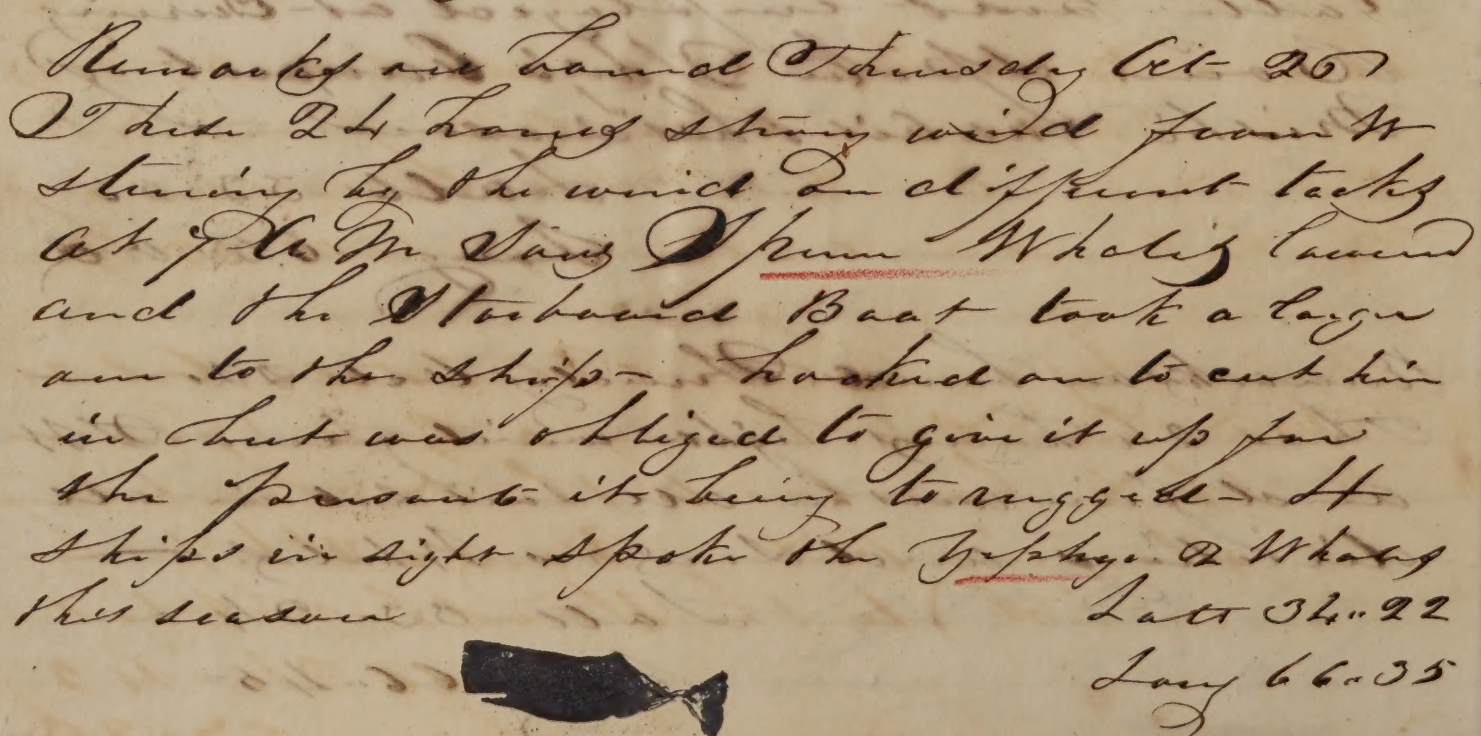 Remarks on board Thursday Oct 26
These 24 hours strong wind from W
stering by the wind on different tacks
at 7 A M Saw Sperm Whales lowered
and the Starboard Boat took a large
one to the ship - hooked on to cut him
in but was obliged to give it up for
the present it being to rugged - 4
ships in sight spoke the Zephyr 2 Whales
this season
Latt 34..22
Long 66..35